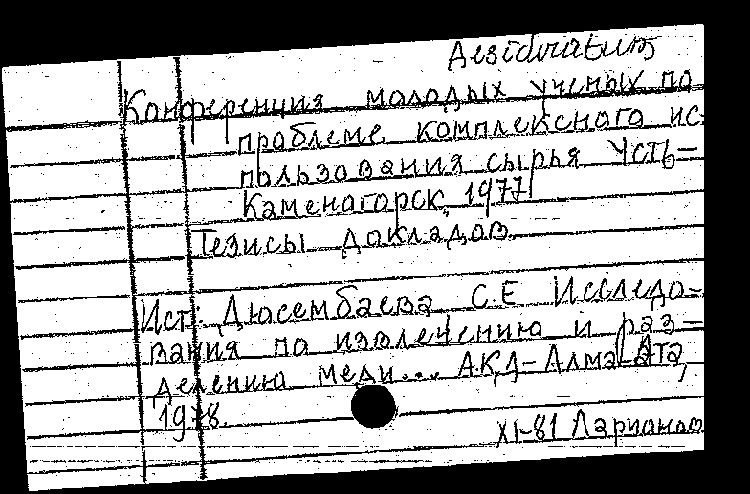 Desideratum
Конференция молодых ученых по
проблеме комплексного ис-
пользования сырья Усть-
Каменогорск, 1977
Тезисы докладов.
Ист: Дюсембаева С.Е Исследо-
вания по извлечению и раз-
делению меди... АКД-Алма-Ата,
1978.
XI-81 Ларионов